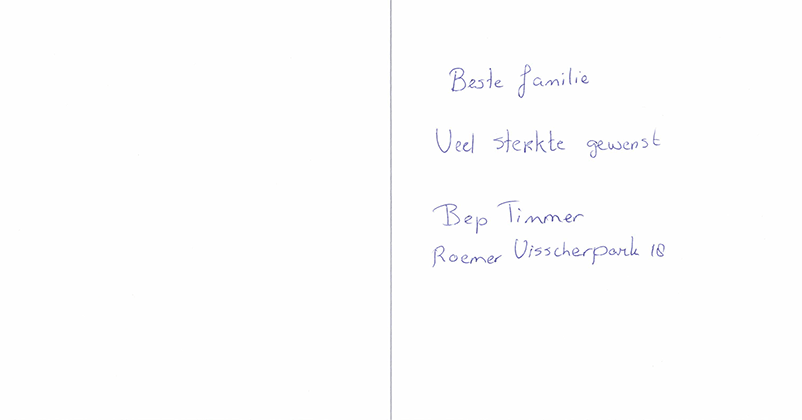 Beste familie
Veel sterkte gewenst
Bep Timmer
Roemer Visscherpark 18